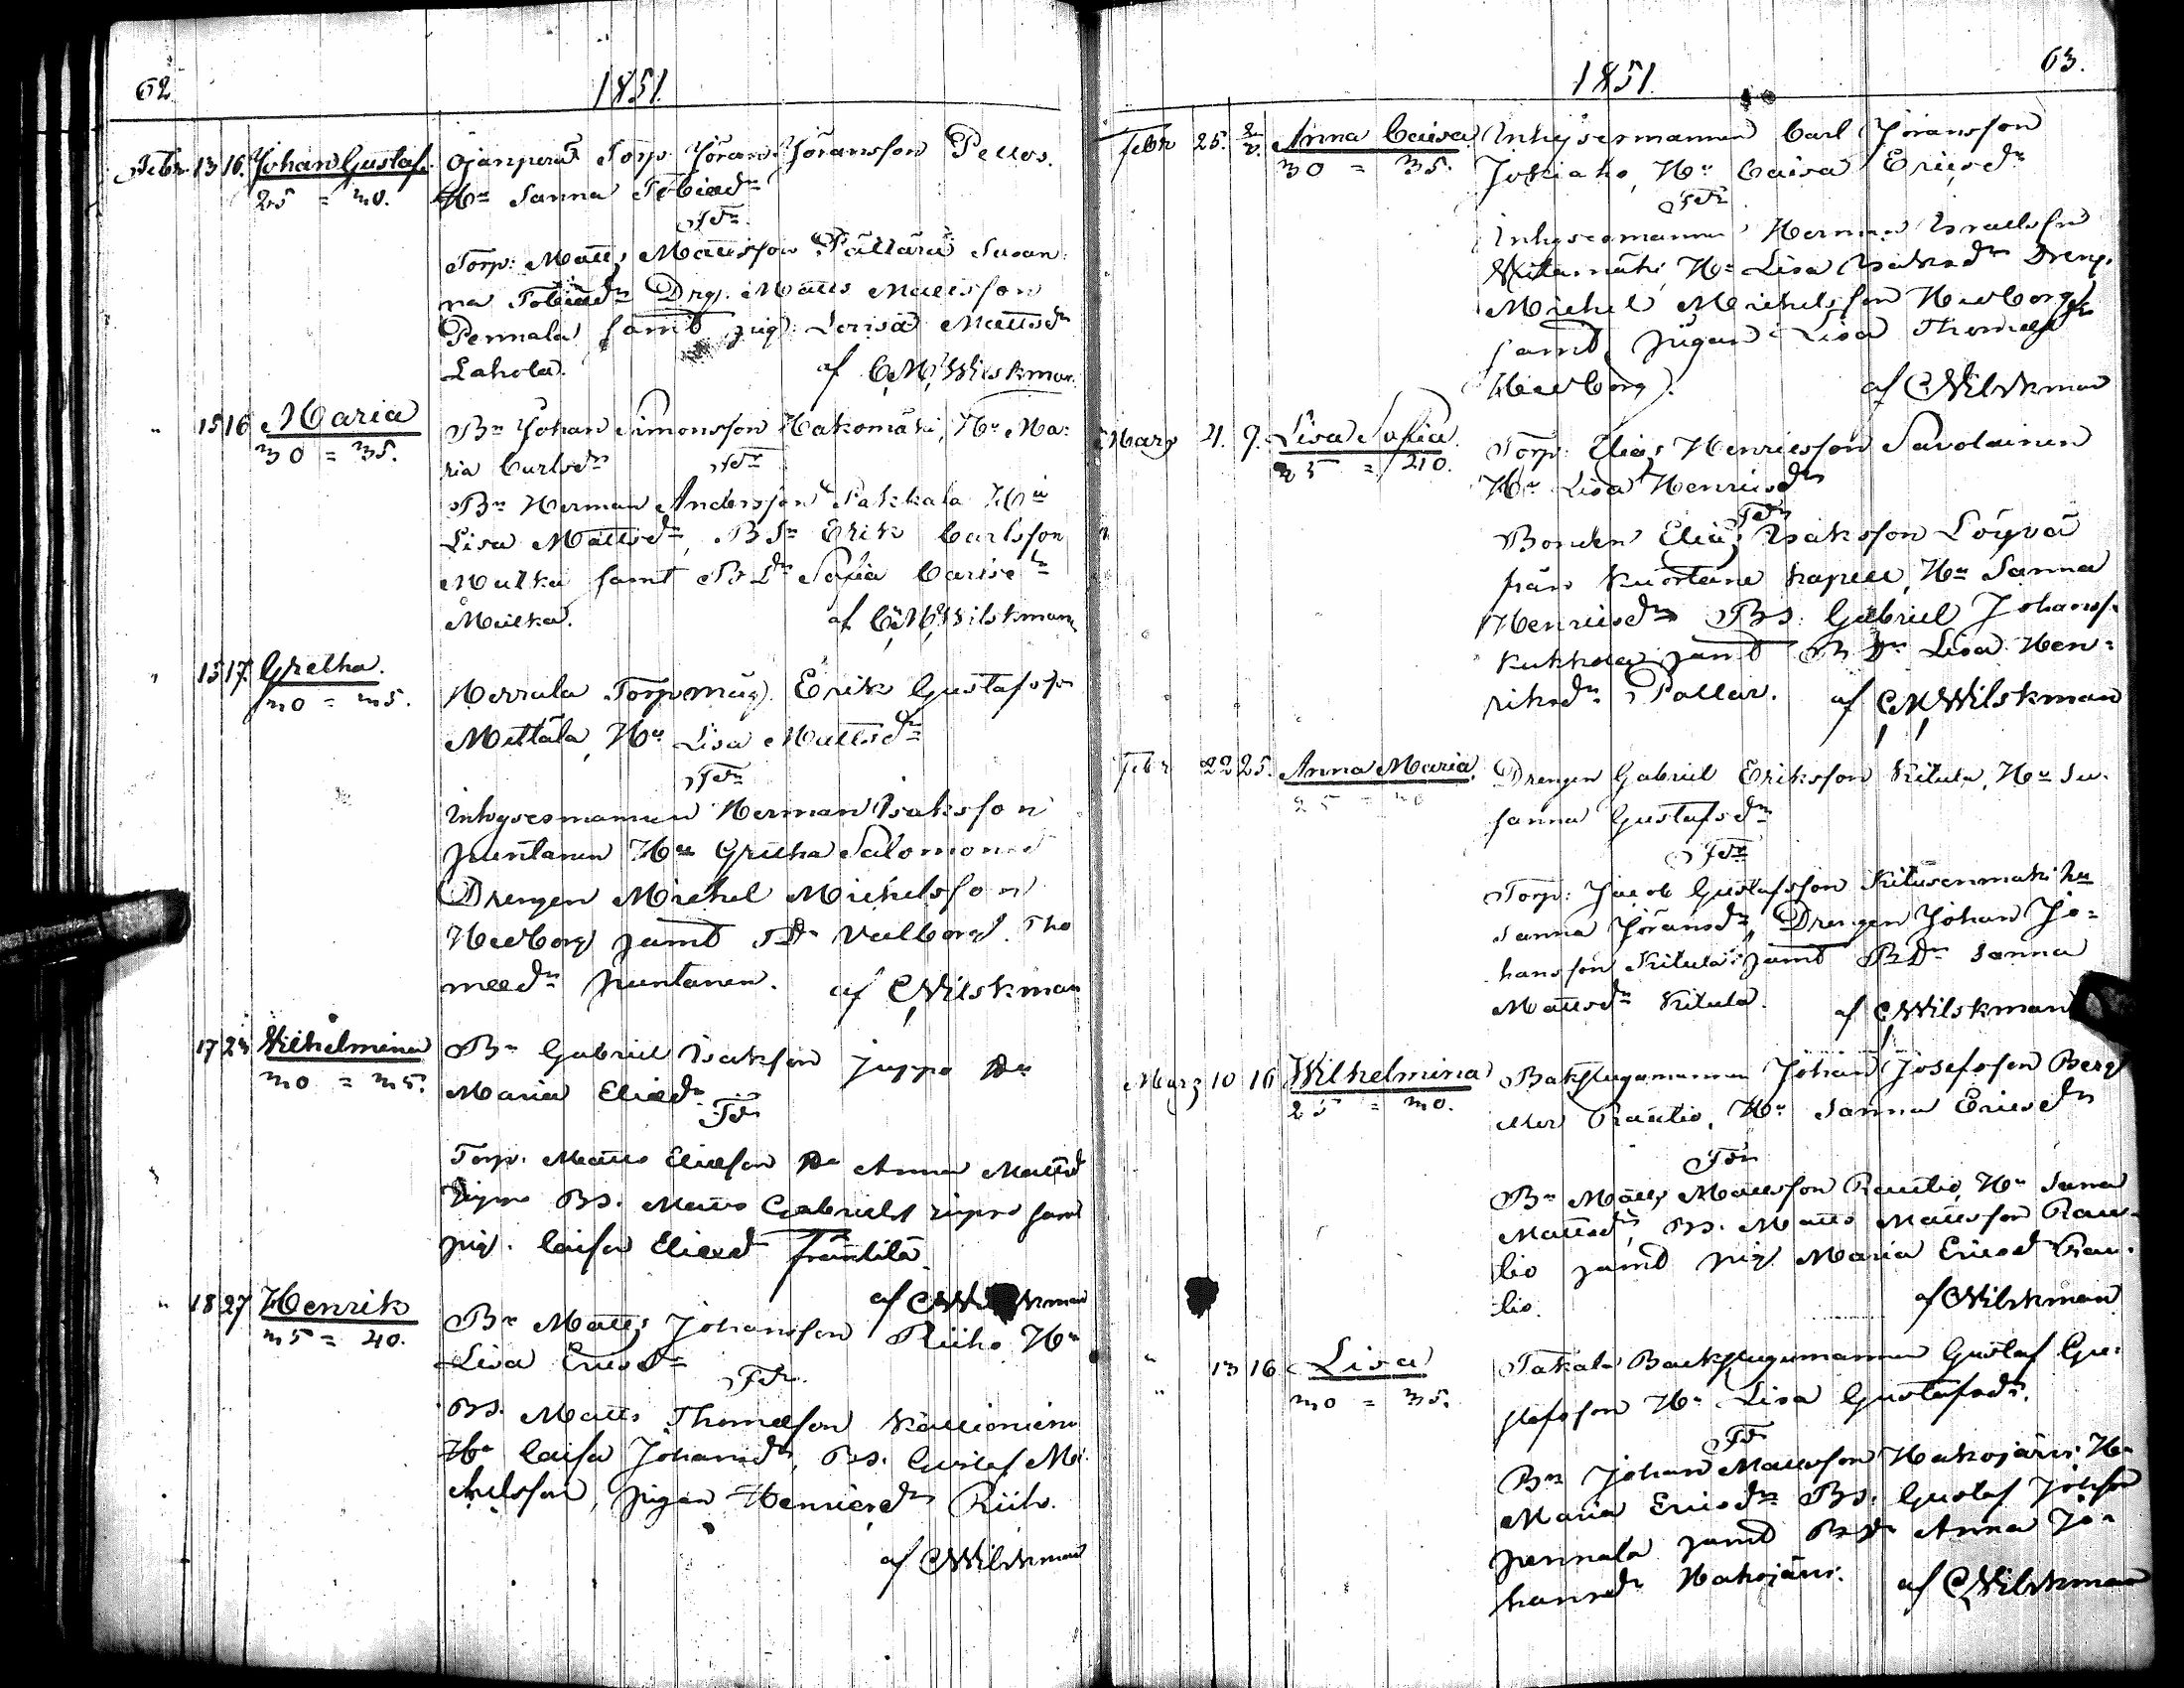 62
1851.
Febr. 13 16. Johan Gustaf. Ojanperä Torp. Jöran Jöransson Pellos.
25 = 30. Hu Sanna Tobiaedr
Fdr
Torp: Matts Mattsson Pällärä Susan:
na Tobiaedr Drg. Matts Mattsson
Pennala samt pig: Lovisa Mattsdr
Lahola. af C,M,Wilskman.
" 15 16 Maria Bn Johan Simonsson Hakomäki, Hu Ma:
30 = 35. ria Carlsdr Fdr
Bn Herman Andersson Pakkala Hu
Lisa Mattsdr, BSn Erik Carlsson
Mulka samt BDr Sofia Carlsdr
Mulka. af C,M,Wilskman
" 15 17. Gretha. Herrala Torpmåg Erik Gustafsson
30 = 35. Mettälä, Hu Lisa Mattsdr
Fdr
Inhysesmannen Herman Isaksson
Puntanen Hu Gretha Salomonsd
Drengen Michel Michelsson
Hedborg samt TDr Valborg Tho
maedr Puntanen. af CWilskman
17 23 Wilhelmina Bn Gabriel Isaksson Juppo Hu
30 = 35. Maria Eliaedr
Fdr
Torp. Matts Eliasson Hu Anna Mattsd
BS. Matts Gabrielss samt
pig. Caisa Eliaed Frantilä
af CWilskman
" 18 27 Henrik Bn Matts Johansson Riiho Hu
35 = 40. Lisa Ericsdr
Fdr.
BS. Matts Thomasson Kallioniemi
Hu Caisa Johansdr, BS. Gustaf Mi
chelsson, pigan Henricsdr Riiho.
af CWilskman
63.
1851.
Febr 25. 2/3. Anna Caisa Inhysesmannen Carl Jöransson
30 = 35. Jokiaho, Hu Caisa Ericsdr
Fdr
Inhysesmannen Herman Israelsson
Hu Lisa Isaksdr Dreng.
Michel Michelsson Hedborg
samt pigan Lisa Thomaedr
Hedborg. af CWilskman
Mars 4. 9. Lisa Sofia. Torp. Elias Henricsson Savolainen
35 = 40. Hu Lisa Henricsdr
Fdr
Bonden Elias Isaksson Löyvä
från Kuortane kapell, Hu Sanna
Henricsdr BS. Gabriel Johanss.
Kukkola samt BDr Lisa Hen:
riksdr Pollar. af C,M,Wilskman
Febr 22 25. Anna Maria. Drengen Gabriel Eriksson Kitula, Hu Su.
25 = 30 sanna Gustafsdr
Fdr
Torp: Jacob Gustafsson Kitusenmäki hu
Sanna Jöransdr, Drengen Johan Jo:
hansson Kitula samt BDr Sanna
Mattsdr Kitula. af CWilskman
Mars 10 16 Wilhelmina Backstugumannen Johan Josefsson Berg
25 = 30. eller Rautio. Hu Sanna Ericsdr
Fdr
Bn Matts Mattsson Rautio, Hu Sanna
Mattsdr, BS. Matts Mattsson Rau-
tio samt pig. Maria Ericsdr Rau-
tio. af CWilskman
" 13 16 Lisa Takala Backstugumannen Gustaf Gu:
30 = 35. stafsson Hu Lisa Gustafsdr.
Fdr
Bn Johan Mattsson Hakojärvi Hu
Maria Ericsdr BS. Gustaf Johsson
Pennala samt BDr Anna Jo-
hansdr Hakojärvi. af CWilskman